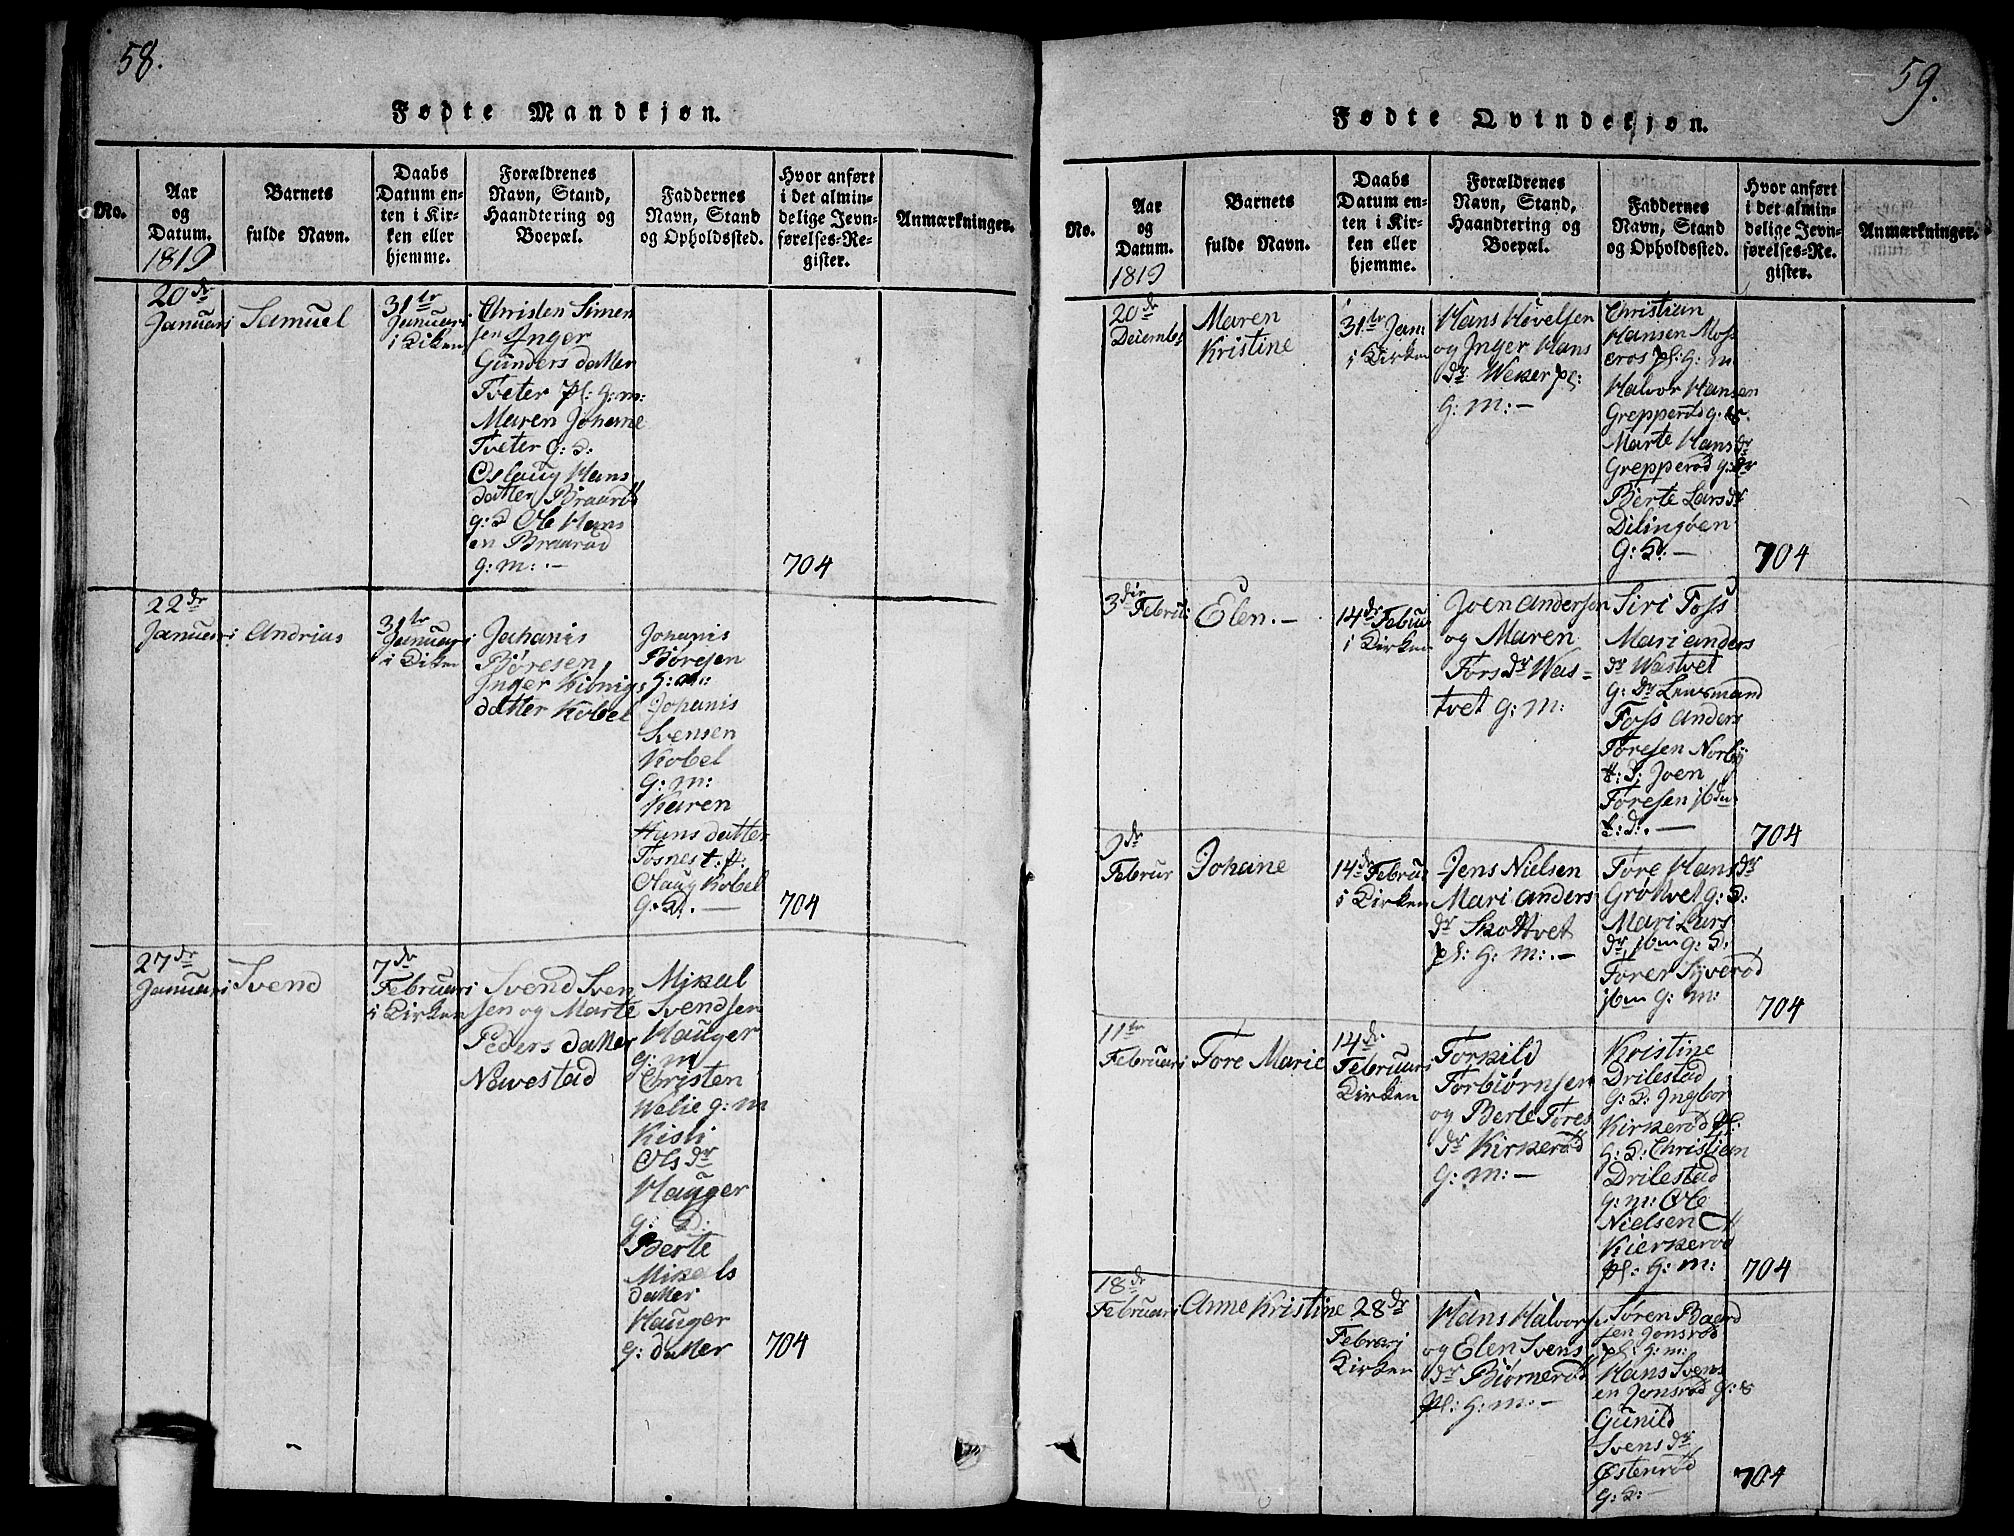 58.
Fødte Mandkjøn.
No.
Aar
og
Datum.
1819
Barnets
fulde Navn.
Daabs
Datum en-
ten i Kir-
ken eller
hjemme.
Forældrenes
Navn, Stand,
Haandtering og
Boepæl.
Faddernes
Navn, Stand
og Opholdssted.
Hvor anført
i det almin-
delige Jevn-
førelses-Re-
gister.
Anmærkninger.
20de
Januari
Samuel
31te
Januari
i Kirken
Christen Simen
sen Inger
Gunders datter
Tveter pl: g: m:
Maren Johanne
Tveter g: D:
Oslaug Hans
datter Braarød
g: D Ole Hans
en Braarød
g: m: .—
704
22de
Januari
Andrias
31te
Januari
i Kirken
Johanis
Børesen
Inger
datter Kobel
Johanis
Børesen
g: m:
Johanis
Svensen
Kobel
g: m:
Karen
Hans datter
Tosnes
Olaug Kobel
g. D. —
704
27de
Januari
Svend
7de
Februari
i Kirken
Svend Sven
sen og Marte
Peders datter
Navestad
Mikal
Svendsen
Hauger
g: m
Christen
Welie g: m
Kisti
Ols dr
Hauger
g: D:
Berte
Mikals
datter
Hauger
g: datter
704
59.
Fødte Qvindekjøn.
No.
Aar
og
Datum.
1819
Barnets
fulde Navn.
Daabs
Datum en-
ten i Kir-
ken eller
hjemme.
Forældrenes
Navn, Stand,
Haandtering og
Boepæl.
Faddernes
Navn, Stand
og Opholdssted.
Hvor anført
i det almin-
delige Jevn-
førelses-Re-
gister.
Anmærkninger.
20de
Maren
Kristine
31te Jan:
i Kirken
Hans Hövelsen
og Inger Hans
dr. Weker pl:
g: m: —
Christian
Hansen Moss
eros pl: g: m
Halvor Hansen
Grepperød g.
Marte Hans dr
Grepperød g:
Berte Lars dr
Dilingöen
g: D: —
704
3die Februi:
Elen. —
14de
i Kirken
Joen Andersen
og Maren
Tors dr Was-
tvet g: m:
Siri Foss
Mari anders
dr Wastvet
g: dr Lensmand
Foss anders
Toresen Norby
Joen
Toresen ibm
704
9de
Februr
Johane
14de
i Kirken
Jens Nielsen
Mari anders
dr Skottvet
pl: g: m: . —
Tore Hans dr
Grøtvet g: D:
Mari Lars
dr ibm g: D.
Torer Syverød
ibm g: m:
704
11te
Februari
Tore Marie
14de
Februari
Kirken
Torkild
Torbiørnsen
og Berte Tores
dr Kirkerød
g: m: —
Kristine
Drilestad
g: D: Ingbor
Kirkerød pl:
g: D: Christien
Drilestad
g: m: Ole
Nielsen
Kierkerød
pl: g: m:
704
18de
Februari
Anne Kristine
28de
Februari
Kirken
Hans Halvorsen
og Elen Svens
dr Biørnerød
pl: g: m: —
Søren Baard
sen Jonsrød
pl: g: m:
Hans Svens
en Jonsrød
Gunild
Svens dr
Østenrød
g: D: —
704